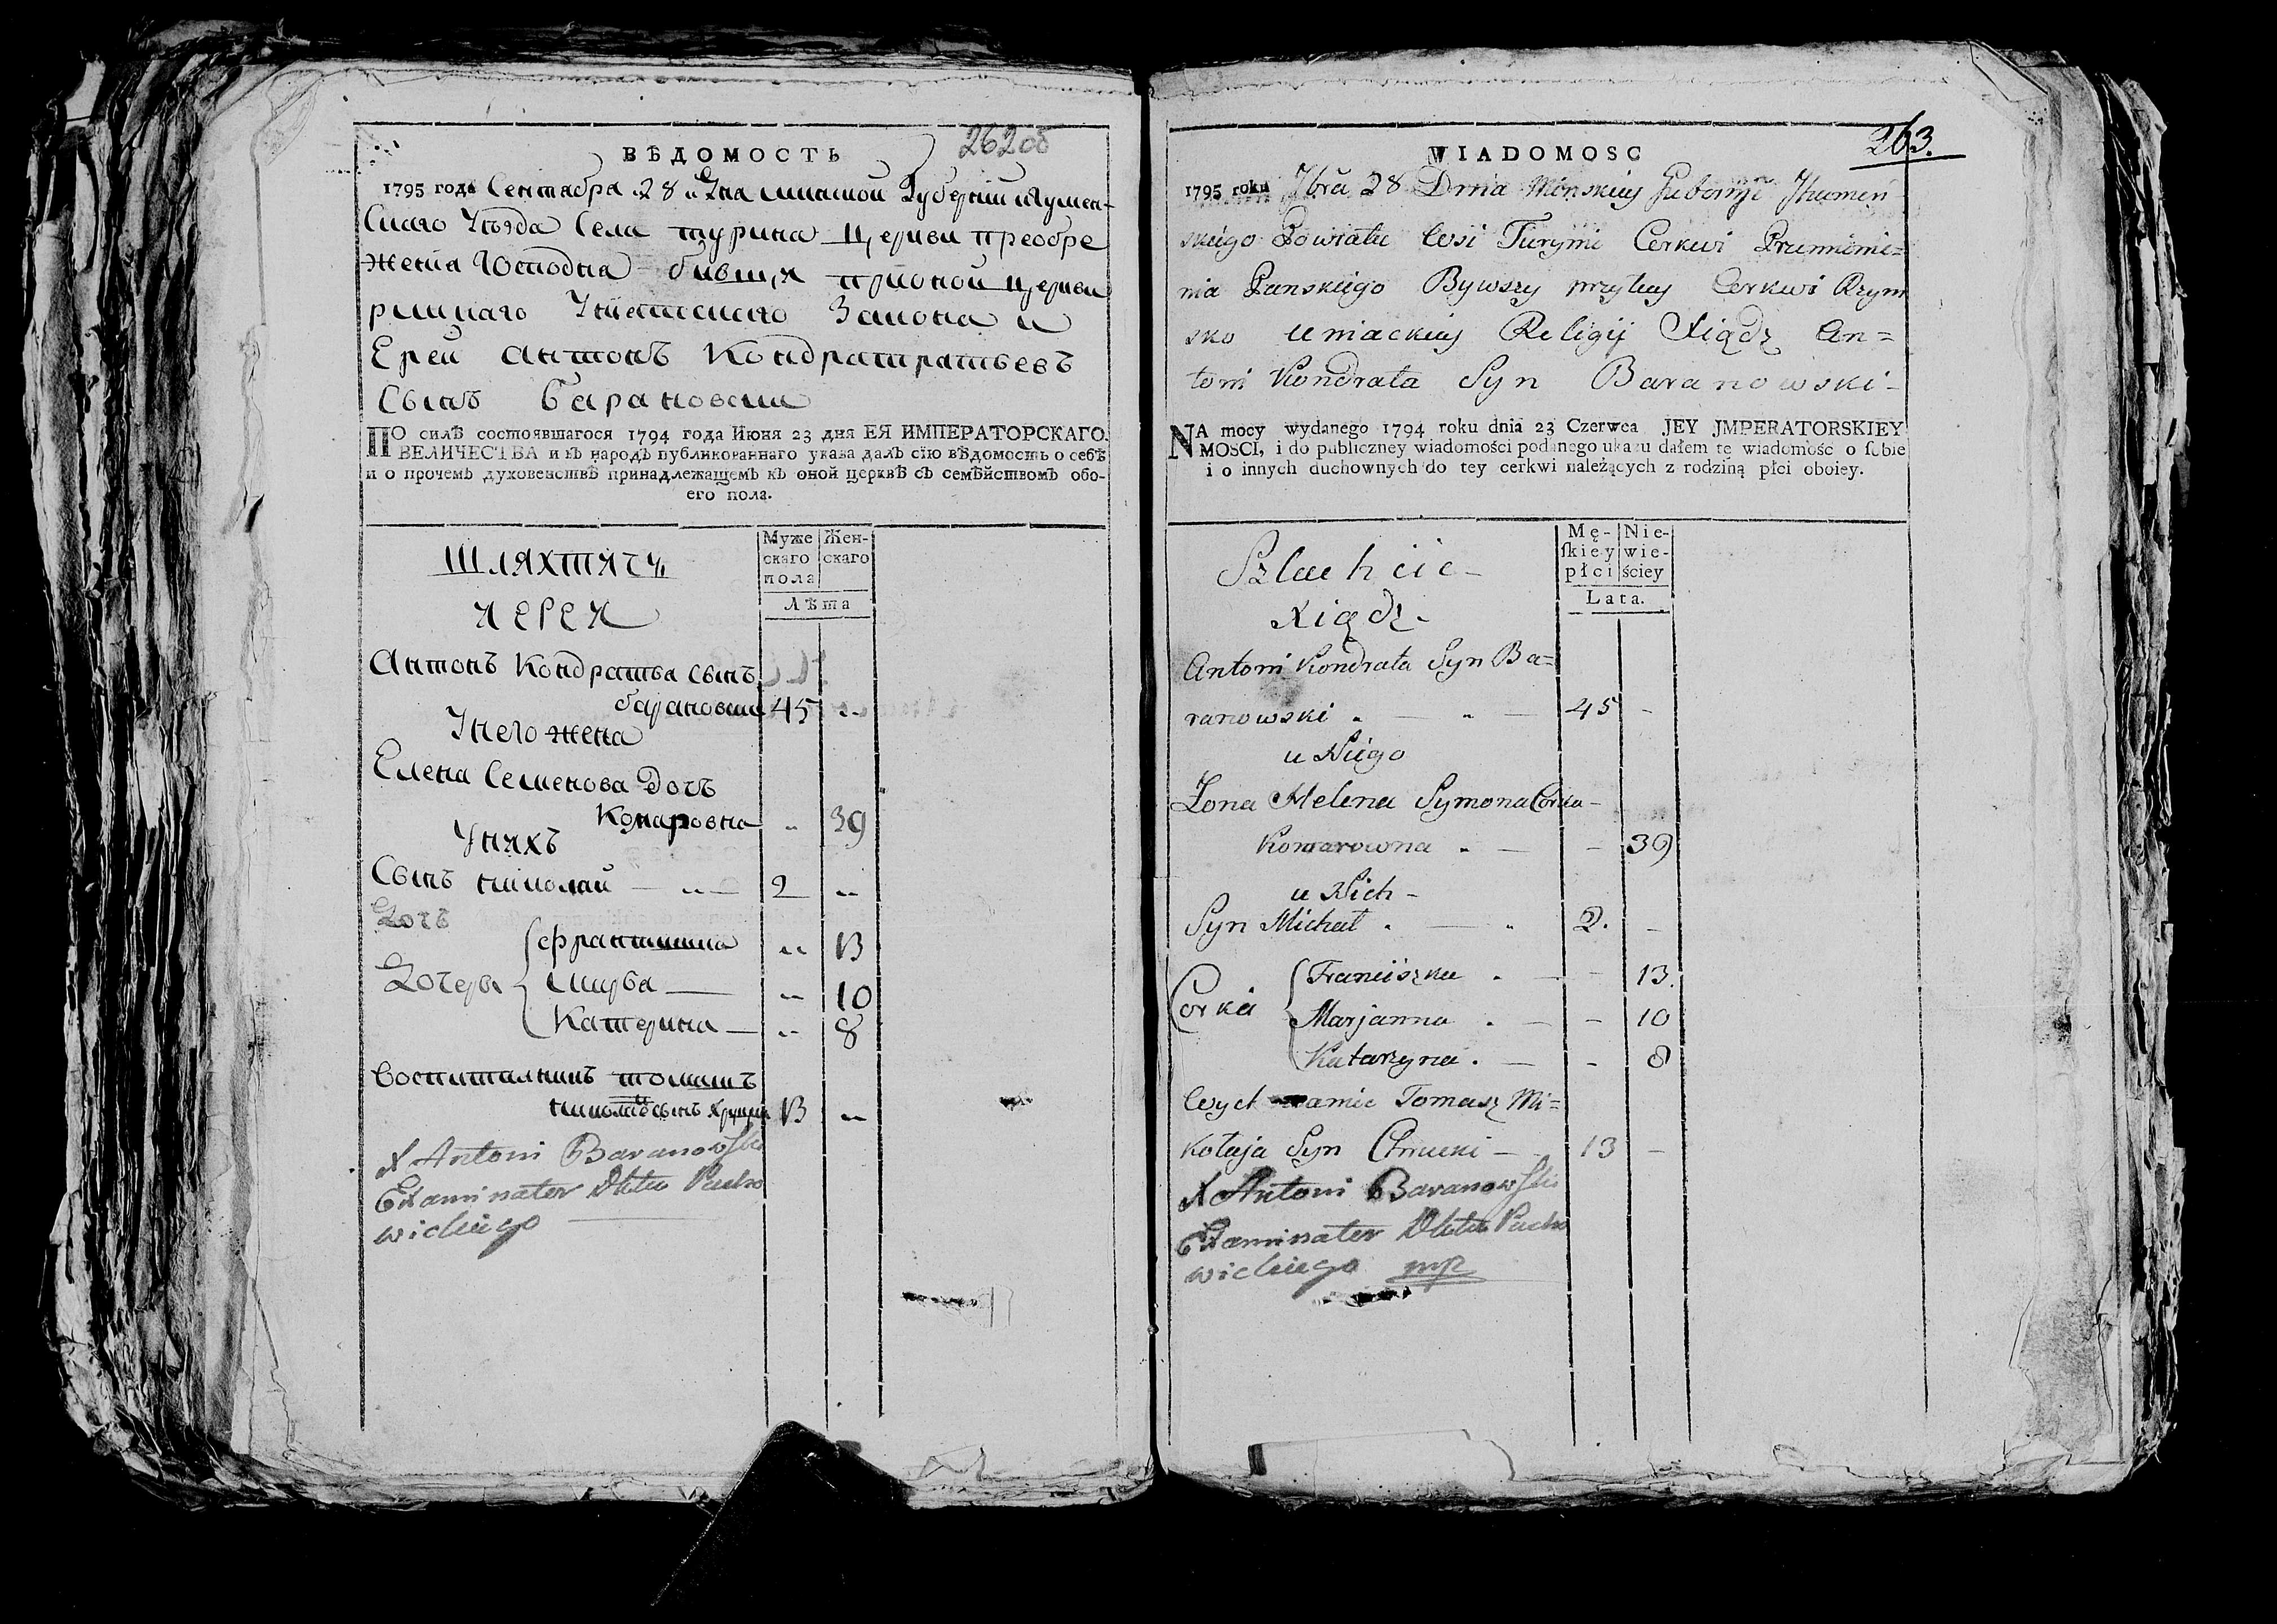 262об
ВѢДОМОСТЬ
1795 года Сентабра 28 Дна минской Губерніи игумен-
Скаго Уѣзда Села турина Церкви преобре
женіа Господна бывшія при оной церкви
римскаго Уніатскаго Закона и
Ерей антонъ Кондратратьевъ
Сынъ Барановски
ПО силѣ состоявшагося 1794 года Июня 23 дня ЕЯ ИМПЕРАТОРСКАГО
ВЕЛИЧЕСТВА и въ народъ публикованнаго указа далъ сїю вѣдомость о себѣ
и о прочемъ духовенствѣ принадлежащемъ къ оной церквѣ съ семѣйствомъ обо-
его пола.
Муже
скаго
пола
Жен-
скаго
Лѣта
шляхтичи
иереи
антонъ Кондратьва сынъ
барановски 45 „
У него жена
Елена Семенова Дочъ
Комаровна „ 39
У нихъ
Сынъ николай — „ — 2 „
Дочъ
Дочери францишка „ 13
марьа — „ 10
Катерина — „ 8
Воспитанникъ томашъ
николай сынъ 13 „
X Antoni Baranowski
Examinator Dktu Pucho
wickiego
263.
WIADOMOSC
1795 roku 7bra 28 Dnia Minskiey Gubernyi Jhumeń
skiego Powiatu Wsi Turyni Cerkwi Przemienie=
nia Panskiego Bywszy przytey Cerkwi Rzym
sko Uniackiey Religij Xiądz An=
toni Kondrata Syn Baranowski-
NA mocy wydanego 1794 roku dnia 23 Czerwca JEY JMPERATORSKIEY
MOSCI, i do publiczney wiadomości podanego ukazu dałem tę wiadomość o sobie
i o innych duchownych do tey cerkwi należących z rodziną płci oboiey.
Mę-
skiey
płci
Nie-
wie-
ściey
Lata.
Szlachcic-
Xiądz-
Antoni Kondrata Syn Ba=
ranowski „ — „ — 45 -
u Niego
Żona Helena Symona Corka-
Komarowna „ — - 39
u Nich-
Syn Michał „ — „ 2. -
Corka Franciszka „ — - 13.
Marjanna „ — - 10
Katarzyna „ — - 8
Tomasz Mi=
kołaja Syn — 13 -
X Antoni Baranowski
Examinator Dktu Pucho
wickiego mp